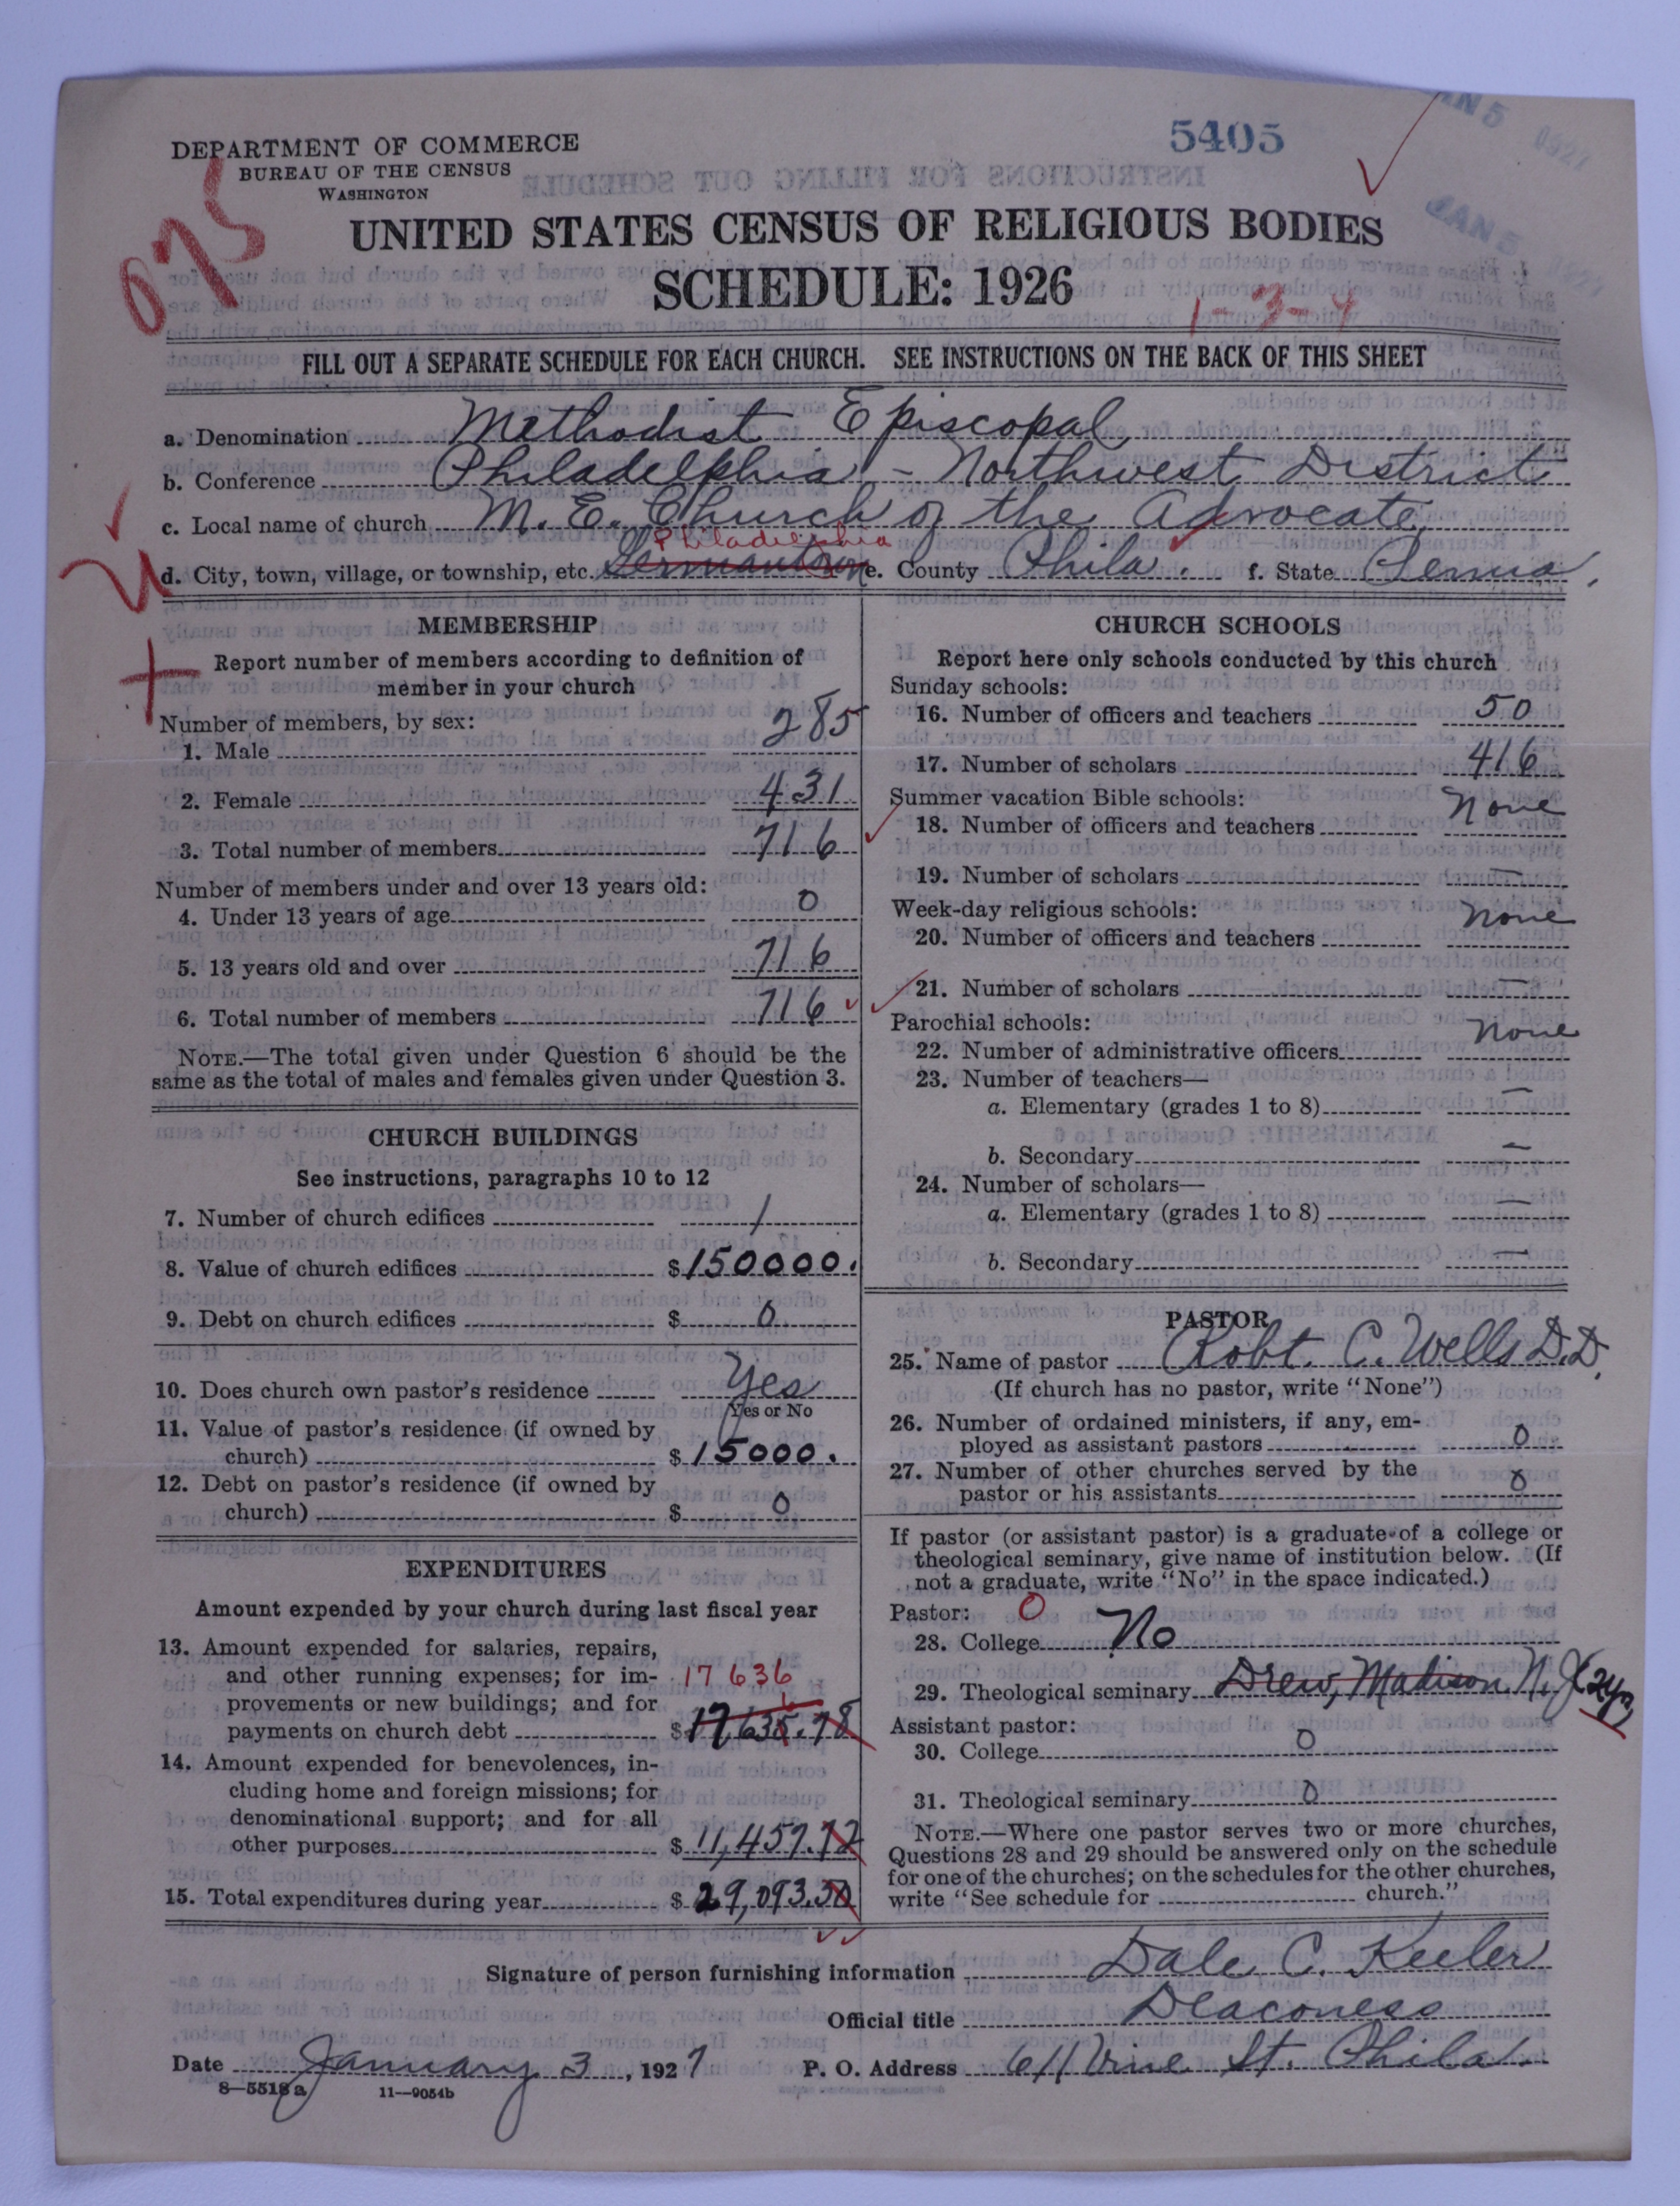 DEPARTMENT OF COMMERCE
BUREAU OF THE CENSUS
WASHINGTON
5405
JAN 5
JAN 5
075
UNITED STATES CENSUS OF RELIGIOUS BODIES
SCHEDULE: 1926
1-3-4
FILL OUT A SEPARATE SCHEDULE FOR EACH CHURCH. SEE INSTRUCTIONS ON THE BACK OF THIS SHEET
a. Denomination Methodist Episcopal
b. Conference Philadelphia - Northwest District
c. Local name of church M. E. Church of the Advocate
Philadelphia
d. City, town, village, or township, etc. Germantown e. County Phila. f. State Penna.
MEMBERSHIP
Report number of members according to definition of
member in your church
Number of members, by sex:
1. Male 285
2. Female 431
3. Total number of members 716
Number of members under and over 13 years old:
4. Under 13 years of age 0
5. 13 years old and over 716
6. Total number of members 716
NOTE.—The total given under Question 6 should be the
same as the total of males and females given under Question 3.
CHURCH BUILDINGS
See instructions, paragraphs 10 to 12
7. Number of church edifices 1
8. Value of church edifices $150000.
9. Debt on church edifices $ 0
10. Does church own pastor's residence Yes
Yes or No
11. Value of pastor's residence (if owned by
church) $15000.
12. Debt on pastor's residence (if owned by
church) $ 0
EXPENDITURES
Amount expended by your church during last fiscal year
13. Amount expended for salaries, repairs,
and other running expenses; for im- 17 636
provements or new buildings; and for
payments on church debt $17,635.78
14. Amount expended for benevolences, in-
cluding home and foreign missions; for
denominational support; and for all
other purposes $11,457.72
15. Total expenditures during year $29,093.50
CHURCH SCHOOLS
Report here only schools conducted by this church
Sunday schools:
16. Number of officers and teachers 50
17. Number of scholars 416
Summer vacation Bible schools:
18. Number of officers and teachers None
19. Number of scholars —
Week-day religious schools:
20. Number of officers and teachers None
21. Number of scholars —
Parochial schools:
22. Number of administrative officers None
23. Number of teachers—
a. Elementary (grades 1 to 8) —
b. Secondary —
24. Number of scholars—
a. Elementary (grades 1 to 8) —
b. Secondary —
PASTOR
25. Name of pastor Robt. C. Wells D.D.
(If church has no pastor, write "None")
26. Number of ordained ministers, if any, em-
ployed as assistant pastors 0
27. Number of other churches served by the
pastor or his assistants 0
If pastor (or assistant pastor) is a graduate of a college or
theological seminary, give name of institution below. (If
not a graduate, write "No" in the space indicated.)
Pastor: 0
28. College No
29. Theological seminary Drew, Madison N.J.
Assistant pastor:
30. College 0
31. Theological seminary 0
NOTE.—Where one pastor serves two or more churches,
Questions 28 and 29 should be answered only on the schedule
for one of the churches; on the schedules for the other churches,
write "See schedule for church."
Signature of person furnishing information Dale C. Keeler
Official title Deaconess
Date January 3, 1927 P. O. Address 611 Vine St. Phila.
8—5518a 11—9054b